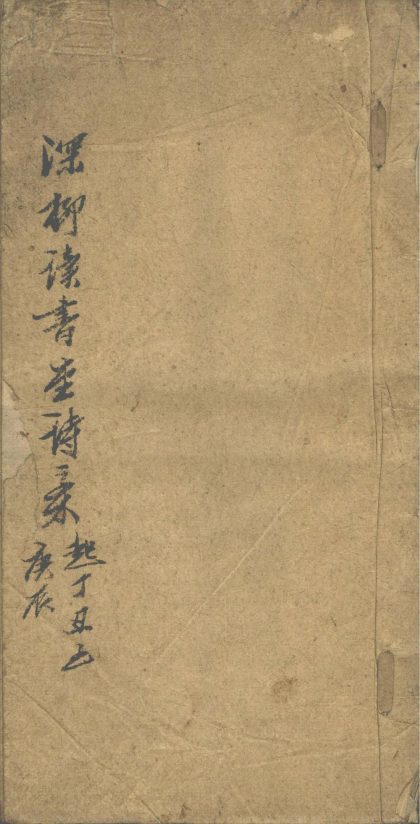 深柳讀書堂詩稾
起丁丑止
庚辰